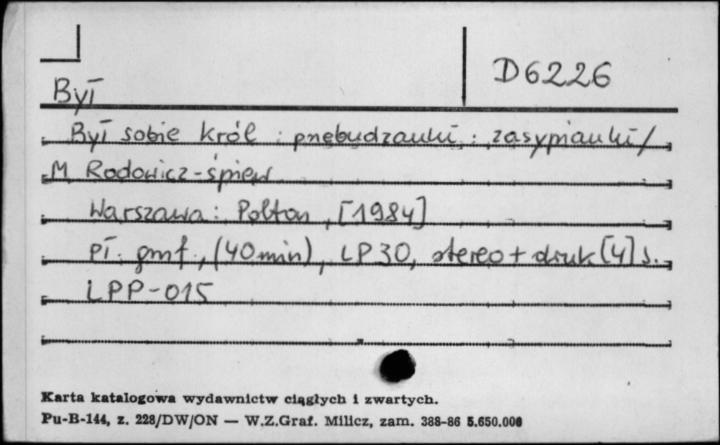 D6226
Był
Był sobie król : przebudzanki : zasypianki /
M Rodowicz - śpiew
Warszawa : Polton, [1984]
Pł. gmf., (40 min), LP 30, stereo + druk [4] s.
LPP-015
Karta katalogowa wydawnictw ciągłych i zwartych.
Pu-B-144, z. 228/DW/ON — W.Z.Graf. Milicz, zam. 388-86 5.650.000